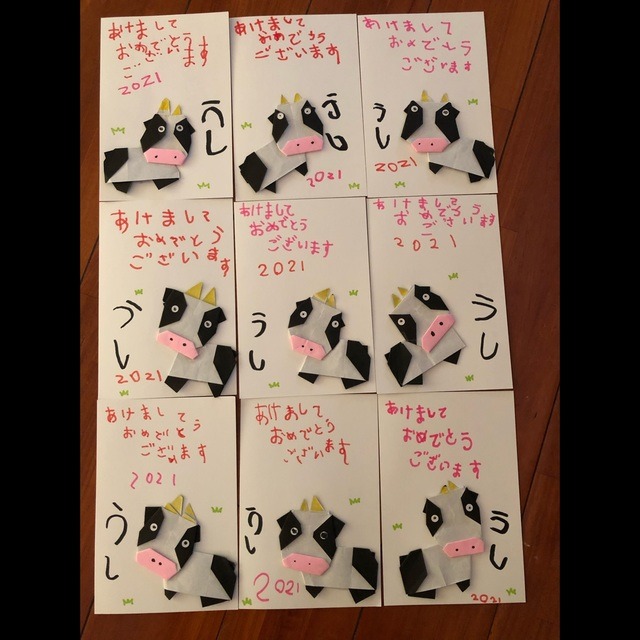 あけまして
おめでとう
ございます
2021
うし
あけまして
おめでとう
ございます
うし
2021
あけまして
おめでとう
ございます
うし
2021
あけまして
おめでとう
ございます
うし
2021
あけまして
おめでとう
ございます
2021
うし
あけまして
おめでとう
ございます
2021
うし
あけまして
おめでとう
ございます
2021
うし
あけまして
おめでとう
ございます
うし
2021
あけまして
おめでとう
ございます
うし
2021